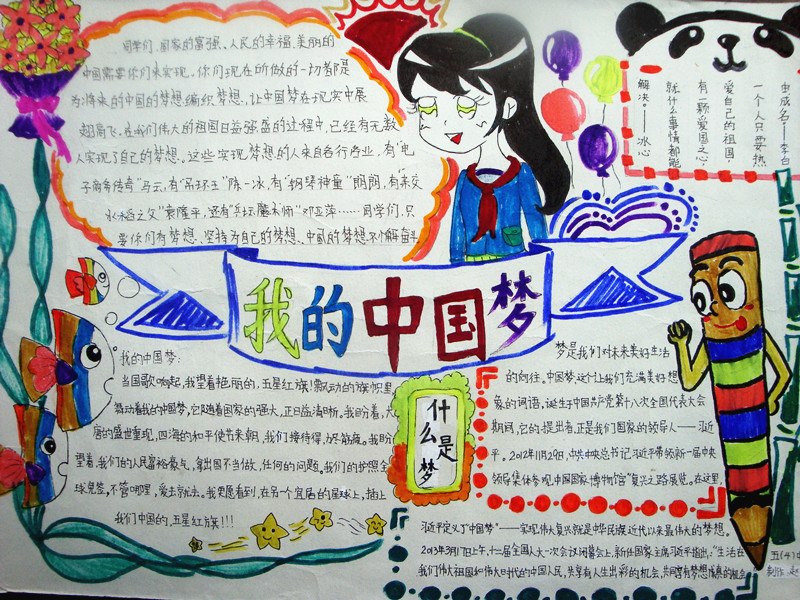 同学们，国家的富强、人民的幸福、美丽的
中国需要你们来实现，你们现在所做的一切都是
为将来的中国的梦想编织梦想，让中国梦在现实中展
翅高飞。在我们伟大的祖国日益强盛的过程中，已经有无数
人实现了自己的梦想，这些实现梦想的人来自各行产业，有"电
子商务传奇"马云，有"吊环王"陈一冰，有"钢琴神童"朗朗，有"杂交
水稻之父"袁隆平，还有"乒坛魔术师"邓亚萍……同学们，只
要你们有梦想，坚持为自己的梦想、中国的梦想不懈奋斗
虫成名——李白
一个人只要热
爱自己的祖国，
有一颗爱国之心，
就什么事情都能
解决——冰心
我的中国梦
我的中国梦：
当国歌响起，我望着艳丽的，五星红旗！飘动的旗帜里
舞动着我的中国梦，它随着国家的强大，正日益清晰。我盼着，大
唐的盛世重现，四海的和平使节来朝，我们接待得
望着，我们的人民富裕豪气，拿出国不当做，任何的问题，我们的护照全
球免签，不管哪里，爱去就去。我更愿看到，在另个宜居的星球上，插上
我们中国的，五星红旗!!!
什么是梦
梦是我们对未来美好生活
的向往。中国梦这个让我们充满美好想
象的词语，诞生于中国共产党第十八次全国代表大会
期间，它的提出者，正是我们国家的领导人——习近
平。2012年11月29日，中共中央总书记习近平带领新一届中央
领导集体参观中国国家博物馆"复兴之路展览，在这里，
习近平定义了"中国梦"——实现伟大复兴就是中华民族近代以来最伟大的梦想。
2013年3月17日上午，十二届全国人大一次会议闭幕会上，新任国家主席习近平指出："生活在
我们伟大祖国和伟大时代的中国人民，共享有人生出彩的机会，共同享有梦想成真的机会
五(4)中
制作：赵